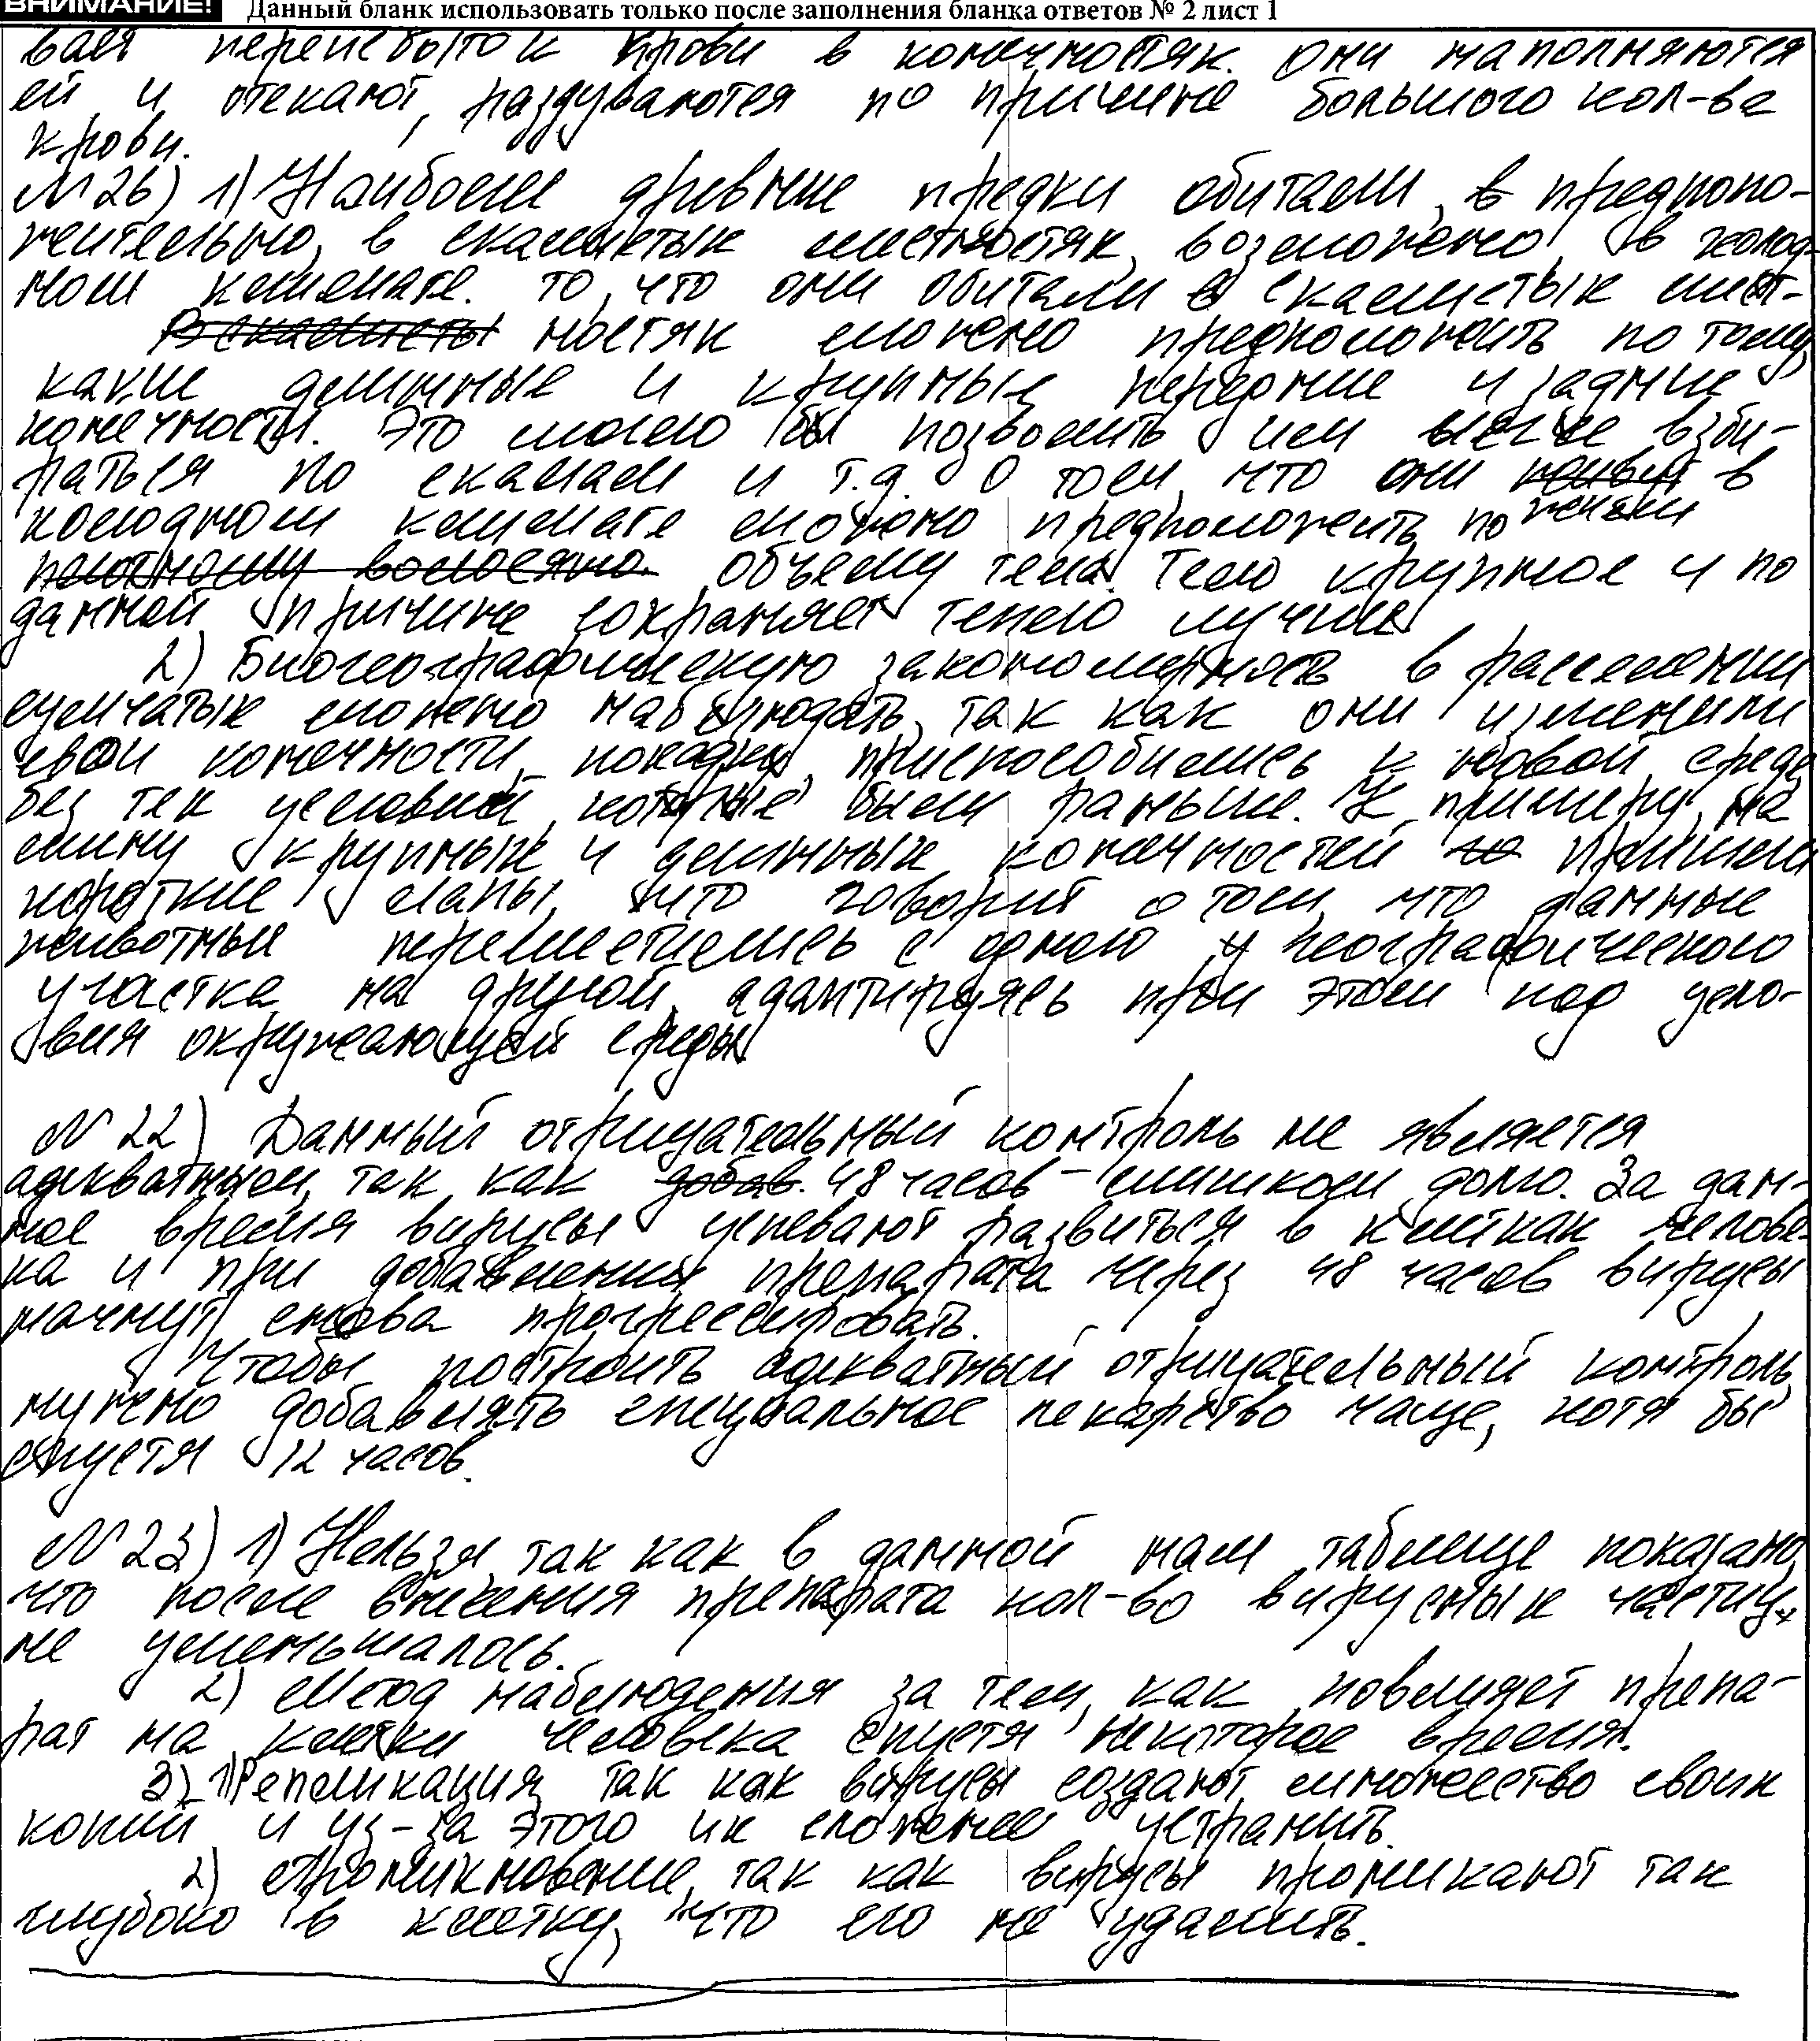 ВНИМАНИЕ! Данный бланк использовать только после заполнения бланка ответов № 2 лист 1
вая переизбыток крови в конечностях. Они наполняются
ей и отекают, раздуваются по причине большого кол-ва
крови.
№26) 1) Наиболее древние предки обитали, в предполо-
жительно, в скалистых местностях, возможно, в холод-
ном климате. То, что они обитали в скалистых мест-
ностях можно предположить по тому,
какие длинные и крупные передние и задние
конечности. Это могло бы позволить им легче взби-
раться по скалам и т.д. О том, что они в
холодном климате можно предположить по
объему тела. Тело крупное и по
данной причине сохраняет тепло лучше
2) Биогеографическую закономерность в расселении
сумчатых можно наблюдать, так как они изменили
свои конечности, приспособились к новой среде
без тех условий, которые были раньше. К примеру, на
смену крупных и длинных конечностей пришли
короткие лапы, что говорит о том, что данные
животные переместились с одного географического
участка на другой, адаптируясь при этом под усло-
вия окружающей среды
№22) Данный отрицательный контроль не является
адекватным, так как 48 часов - слишком долго. За дан-
ное время вирусы успевают развиться в клетках челове-
ка и при добавлении препарата через 48 часов вирусы
начнут снова прогрессировать.
Чтобы построить адекватный отрицательный контроль,
нужно добавлять специальное лекарство чаще, хотя бы
спустя 12 часов.
№23) 1) Нельзя, так как в данной нам таблице показано,
что после внесения препарата кол-во вирусных частиц
не уменьшалось.
2) Метод наблюдения за тем, как повлияет препа-
рат на клетки человека спустя некоторое время.
3) 1) Репликация, так как вирусы создают множество своих
копий и из-за этого их сложнее устранить.
2) Проникновение, так как вирусы проникают так
глубоко в клетку, что его не удалить.